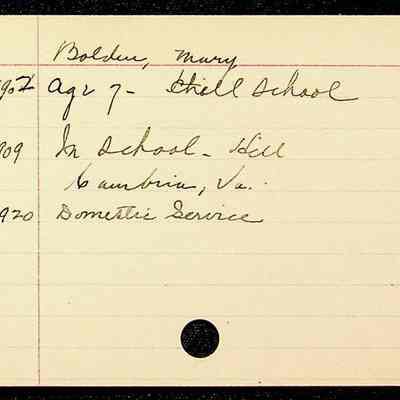 Bolden, Mary
1902 Age 7 - Hill School
1909 In School - Hill
Cambria, Va.
1920 Domestic Service